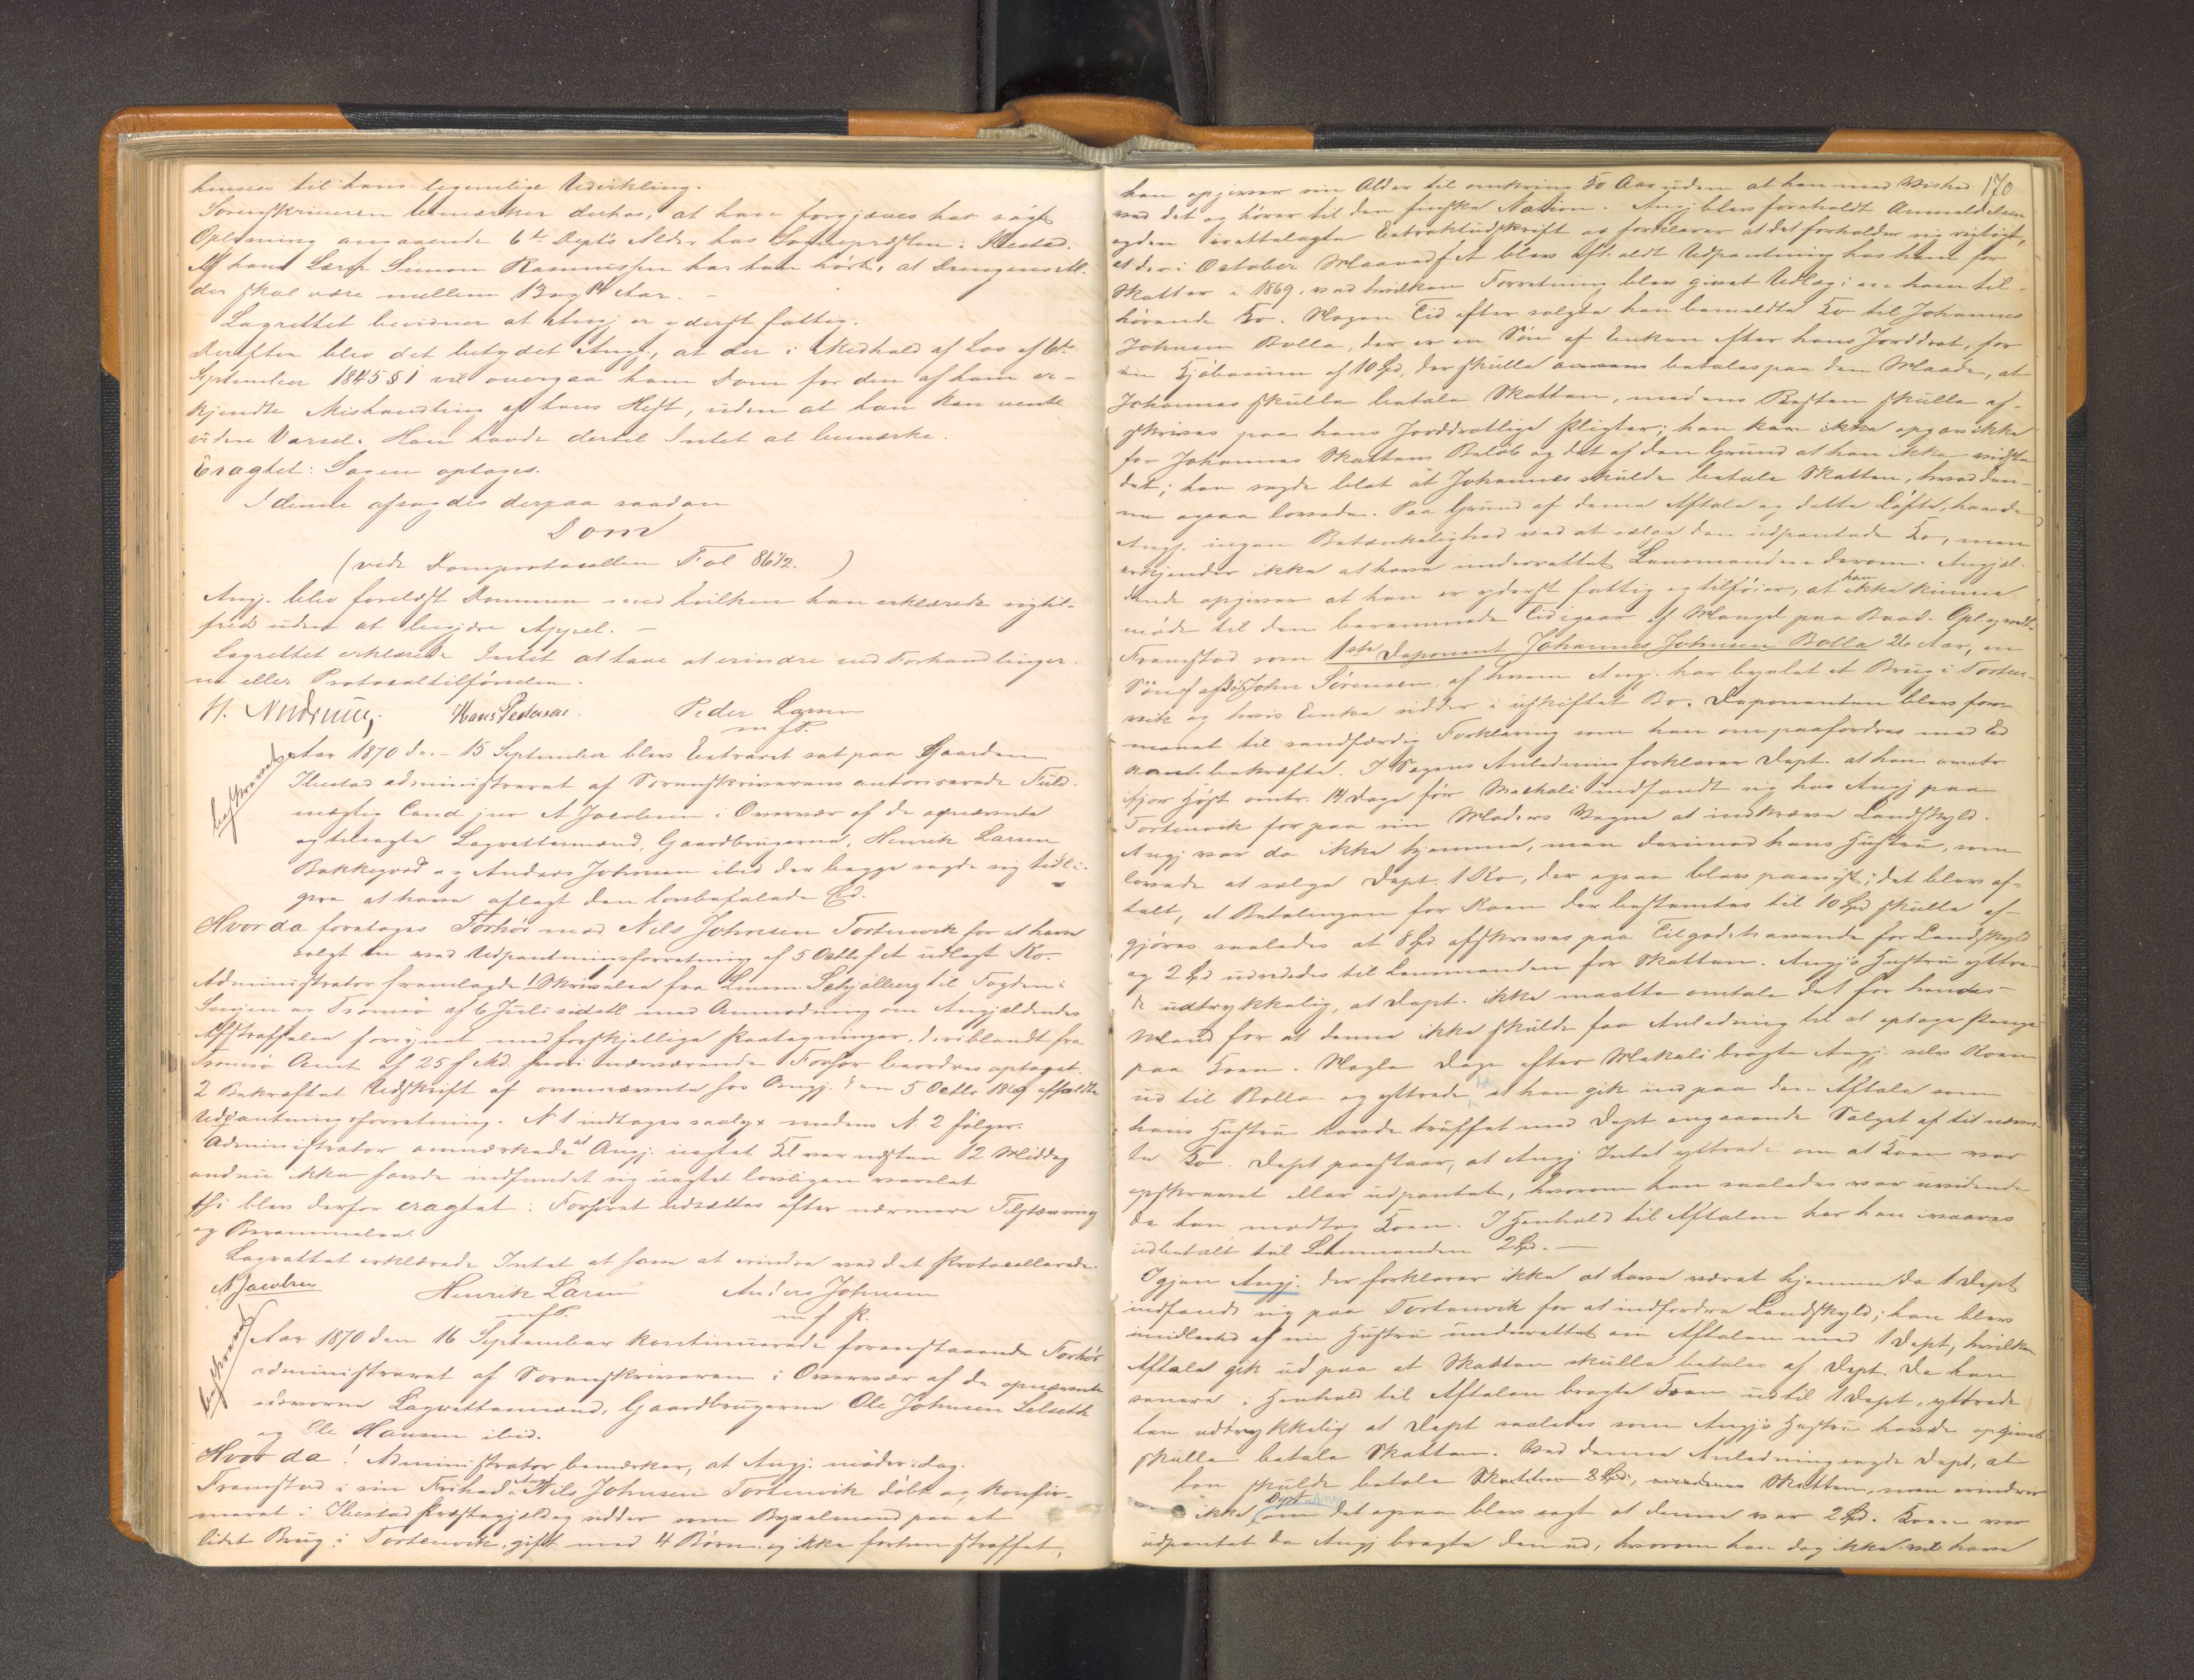 hensees til hans legemlige Udvikling.
Sorenskriveren bemærker derhos, at han forgjæves har søgt
Oplysning angaaende 6te Depts Alder hos Sognepræsten i Ibestad.
Af hans Lærer Simon Rasmussen har han hørt, at Drengens Al-
der skal være mellem 13 og 14 Aar. –
Lagrettet bevidner at Angj er yderst fattig.
Derefter blev det betydet Angj., at der i Medhold af Lov af 6te
September 1845 § 1 vil overgaa ham Dom for den af ham er-
kjendte Mishandling af hans Hest, uden at han kan vente
videre Varsel. Han havde dertil Intet at bemærke.
Eragtet: Sagen optages.
I denne afsagdes derpaa saadan
Dom
(vide Domprotocollen Fol 86½. )
Angj. blev forelæst Dommen med hvilken han erklærede sig til-
freds uden at begjære Appel. –
Lagrettet erklærede Intet at have at erindre ved Forhandlinger-
ne eller Protocoltilførselen.
H. Hans Pedersen. Peder Larsen
m f P.
Aar 1870 den 15 September blev Extraret sat paa Gaarden
Ibestad administreret af Sorenskriverens autoriserede Fuld-
mægtig Cand jur A Jacobsen i Overvær af de opnævnte
og tilsagte Lagrettesmænd, Gaardbrugerne, Henrik Larsen
Bakkegord og Anders Johnsen ibid der begge sagde sig tidli-
gere at have aflagt den lovbefalede Ed.
Hvor da foretoges Forhør mod Nils Johnsen Tortenvik for at have
solgt en ved Udpantningsforretning af 5 Octb f A udlagt Ko.
Administrator fremlagde 1 Skrivelse fra Lensm. Schjelberg til Fogden i
Senjen og Tromsø af 6 Juli sidstl med Anmodning om Angjældendes
Afstraffelse forsynet med forskjellige Paategninger, deriblandt fra
Tromsø Amt af 25 f Md. hvori nærværende Forhør beordres optaget.
2 Bekræftet Udskrift af ovennævnte hos Angj. den 5 Octb 1869 afholdte
Udpantningsforretning. N 1 indtages saalyd. medens N. 2 følger.
Administrator anmærkede at Angj. uagtet Kl var næsten 12 Middag
endnu ikke havde indfundet sig uagtet lovligen varslet
thi blev derfor eragtet: Forhøret udsættes efter nærmere Tilstævning
og Berammelse.
Lagrettet erklærede Intet at have at erindre ved det Protocollerede.
A Jacobsen Henrik Larsen Anders Johnsen
m f P. m f P.
Aar 1870 den 16 September kontinuerede foranstaaende Forhør
administreret af Sorenskriveren i Overvær af de opnævnte
edsvorne Lagrettesmænd, Gaardbrugerne Ole Johnsen Selseth
og Ole Hansen ibid.
Hvor da! Administrator bemærker, at Angj. møder idag.
Fremstod i sin Frihed Angj Nils Johnsen Tortenvik døbt og konfir-
meret i Ibestad Præstegjeld og sidder som Bygselmand paa et
lidet Brug i Tortenvik, gift med 4 Børn og ikke forhen straffet,
170
han opgiver sin Alder til omkring 50 Aar uden at han med Vished
ved det og hører til den finske Nation. Angj blev foreholdt Anmeldelsen
og den irettelagte Extraktudskrift og forklarer at det forholder sig rigtigt,
at der i October Maaned f A blev afholdt Udpantning hos ham for
Skatter i 1869. ved hvilken Forretning blev givet Udlæg i en ham til-
hørende Ko. Nogen Tid efter solgte han bemeldte Ko til Johannes
Johnsen Bolla, der er en Søn af Enken efter hans Jorddrot, for
en Kjøbesum af 10 Spd, der skulle betales paa den Maade, at
Johannes skulle betale Skatten, medens Resten skulle af-
skrives paa hans Jorddrotlige Pligter; han kan ikke opgav ikke
for Johannes Skattens Beløb og det af den Grund at han ikke vidste
det; han sagde blot at Johannes skulde betale Skatten, hvad den-
ne ogsaa lovede. Paa Grund af denne Aftale og dette Løfte, havde
Angj. ingen Betænkelighed ved at sælge den udpantede Ko, men
erkjender ikke at have underrettet Lensmanden derom. Angjæl-
dende opgiver at han er yderst fattig og tilføier, at han ikke kunne
møde til den berammede Tid igaar af Mangel paa Baad. Opl. og vedt.
Fremstod som 1ste Deponent Johannes Johnsen Bolla 26 Aar, en
Søn af afdøde John Sørensen, af hvem Angj. har bygslet et Brug i Torten-
vik og hvis Enke sidder i uskiftet Bo. Deponenten blev for-
manet til sandfærdig Forklaring som han om paafordres med Ed
kan bekræfte. I Sagens Anledning forklarer Dept. at han
ifjor Høst omtr. 14 Dage før Michali indfandt sig hos Angj paa
Tortenvik for paa sin Moders Vegne at indkræve Landskyld.
Angj var da ikke hjemme, men derimod hans Hustru, som
lovede at sælge Dept. 1 Ko, der ogsaa blev paavist; det blev af-
talt, at Betalingen for Koen der bestemtes til 10 Spd skulle af-
gjøres saaledes at 8 Spd afskreves paa Tilgodehavende for Landskyld
og 2 Spd udrededes til Lensmanden for Skatten. Angjs Hustru yttre-
de udtrykkelig, at Dept. ikke maatte omtale det for hendes
Mand for at denne ikke skulde faa Anledning til at optage Penge
paa Koen. Nogle Dage efter Mikali bragte Angj. selv Koen
ud til Bolla og yttrede, at han gik ind paa den Aftale som
hans Hustru havde truffet med Dept angaaende Salget af til nævn-
te Ko. Dept paastaar, at Angj Intet yttrede om at Koen var
opskrevet eller udpantet, hvorom han saaledes var uvidende
da han modtog Koen. I Henhold til Aftalen har han ivaares
udbetalt til Lensmanden 2 Spd. –
Igjen Angj. der forklarer ikke at have været hjemme da 1 Dept
indfandt sig paa Tortenvik for at indfordre Landskyld; han blev
imidlertid af sin Hustru underrettet om Aftalen med 1 Dept, hvilken
Aftale gik ud paa at Skatten skulle betales af Dept. Da han
senere i Henhold til Aftalen bragte Koen ud til 1 Dept, yttrede
han udtrykkelig at Dept saaledes som Angjs Hustru havde opgivet
skulle betale Skatten. Ved denne Anledning sagde Dept, at
han skulde betale Skatten 2 Spd, Skatten, men erindrer
ikke om Dept det ogsaa blev sagt at denne var 2 Spd. Koen var
udpantet da Angj bragte den ud, hvorom han dog ikke vil have